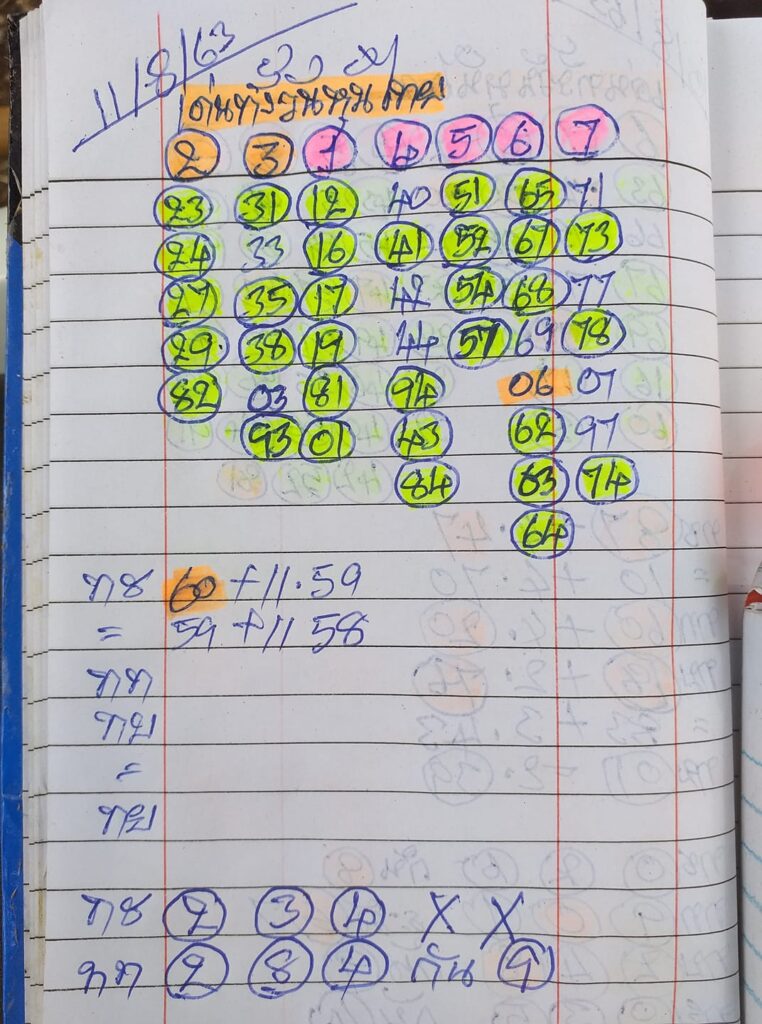 11/8/63
เด่นทั้งวันหุ้นไทย
2 3 1 4 5 6 7
23 31 12 40 51 65 71
24 33 16 41 52 67 73
27 35 17 42 54 68 77
29 38 19 44 57 69 78
82 03 81 94 06 07
93 01 43 62 97
84 63 74
64
ทช 60 + 11.59
= 59 + 11 58
ทท
ทบ
=
ทบ
ทช 2 3 4 X X
ทท 2 8 4 กัน 9